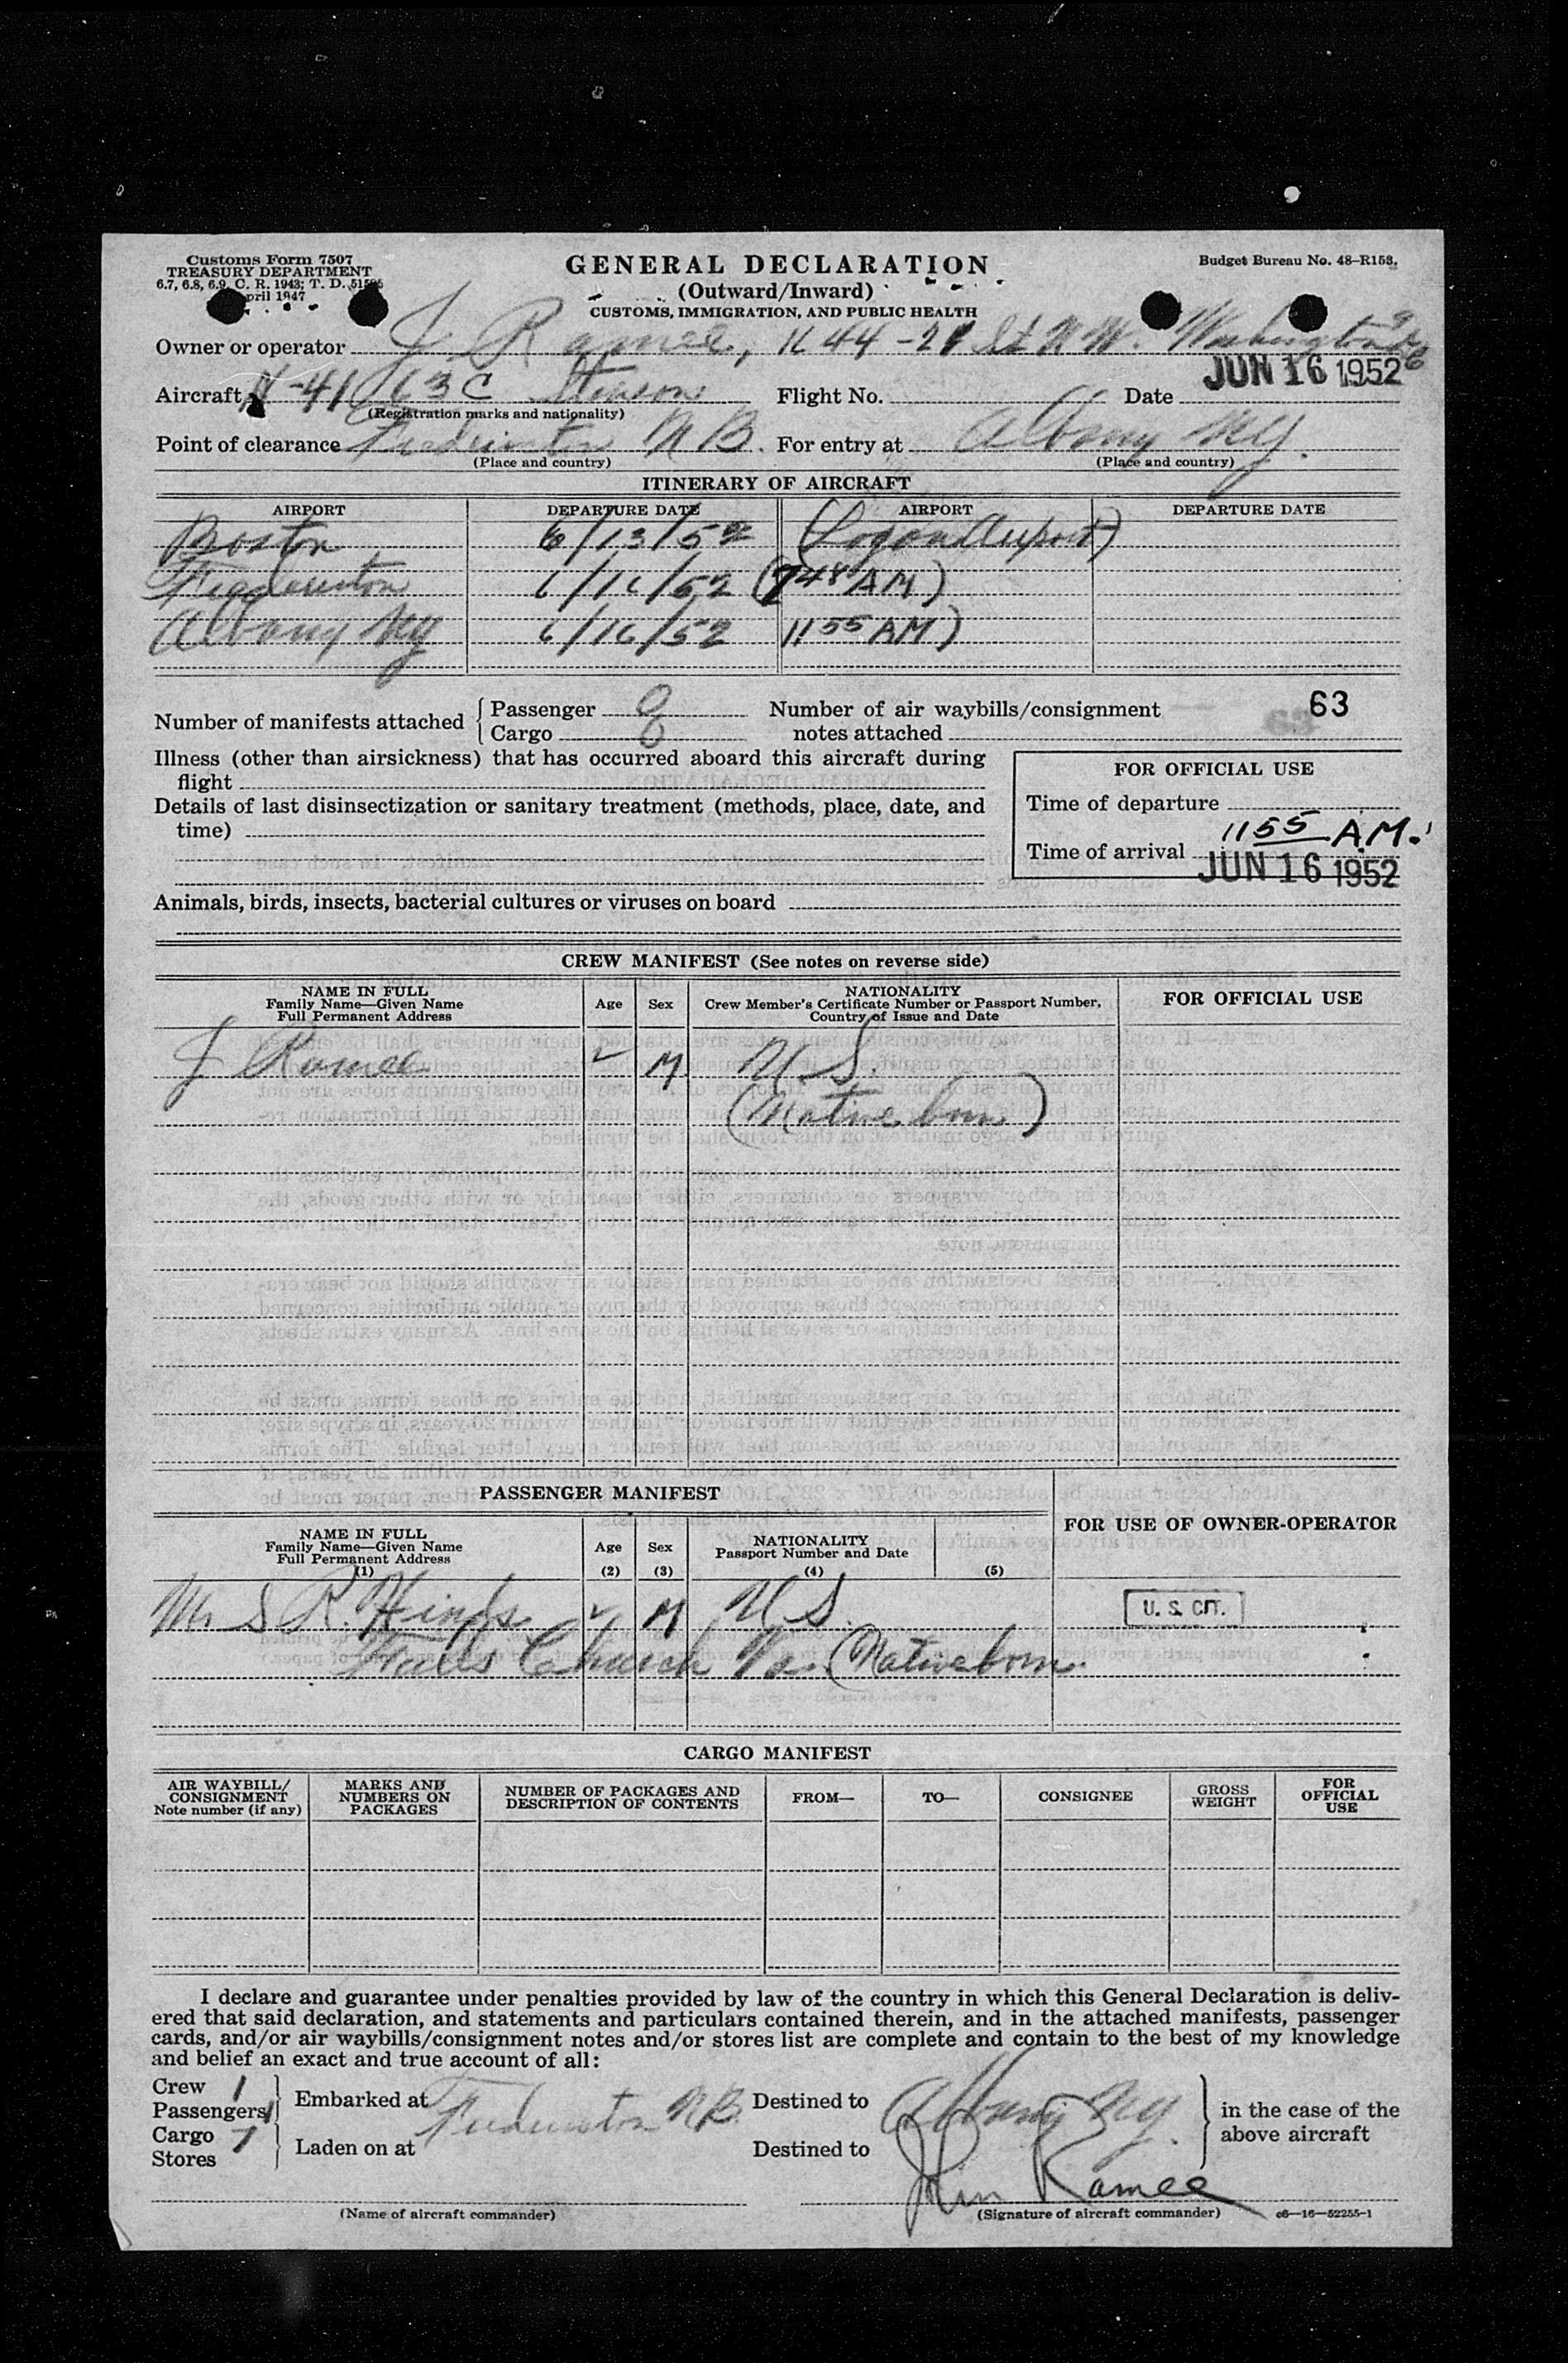 Customs Form 7507
TREASURY DEPARTMENT
6.7, 6.8, 6.9, C. R. 1943; T. D.
April 1947
GENERAL DECLARATION
(Outward/Inward)
CUSTOMS, IMMIGRATION, AND PUBLIC HEALTH
Budget Bureau No. 48-R153.
Owner or operator J Ramee, 1644-21 St N W. Washington
Aircraft N-4163C Stinson Flight No. Date JUN 16 1952
(Registration marks and nationality)
Point of clearance N B. For entry at Albany NY.
(Place and country) (Place and country)
ITINERARY OF AIRCRAFT
AIRPORT DEPARTURE DATE AIRPORT DEPARTURE DATE
Boston 6/13/52 (Logan Airport)
6/16/52 (7 48 AM)
Albany NY 6/16/52 11 55 AM)
Number of manifests attached Passenger Number of air waybills/consignment 63
Cargo notes attached
Illness (other than airsickness) that has occurred aboard this aircraft during
flight
FOR OFFICIAL USE
Details of last disinsectization or sanitary treatment (methods, place, date, and
time)
Time of departure
11 55 A.M.
Time of arrival JUN 16 1952
Animals, birds, insects, bacterial cultures or viruses on board
CREW MANIFEST (See notes on reverse side)
NAME IN FULL
Family Name—Given Name
Full Permanent Address
Age Sex
NATIONALITY
Crew Member's Certificate Number or Passport Number,
Country of Issue and Date
FOR OFFICIAL USE
J Ramee M U.S.
(Native born)
PASSENGER MANIFEST
FOR USE OF OWNER-OPERATOR
NAME IN FULL
Family Name—Given Name
Full Permanent Address
(1)
Age
(2)
Sex
(3)
NATIONALITY
Passport Number and Date
(4)
(5)
Mr S R. Hinds M U S. U. S. CIT.
Falls Church Va. (Native born
CARGO MANIFEST
AIR WAYBILL/
CONSIGNMENT
Note number (if any)
MARKS AND
NUMBERS ON
PACKAGES
NUMBER OF PACKAGES AND
DESCRIPTION OF CONTENTS
FROM—
TO—
CONSIGNEE
GROSS
WEIGHT
FOR
OFFICIAL
USE
I declare and guarantee under penalties provided by law of the country in which this General Declaration is deliv-
ered that said declaration, and statements and particulars contained therein, and in the attached manifests, passenger
cards, and/or air waybills/consignment notes and/or stores list are complete and contain to the best of my knowledge
and belief an exact and true account of all:
Crew 1
Passengers 1
Embarked at N B. Destined to Albany NY. in the case of the
above aircraft
Cargo
Stores
Laden on at Destined to
John Ramee
(Name of aircraft commander) (Signature of aircraft commander) c6—16—52255-1